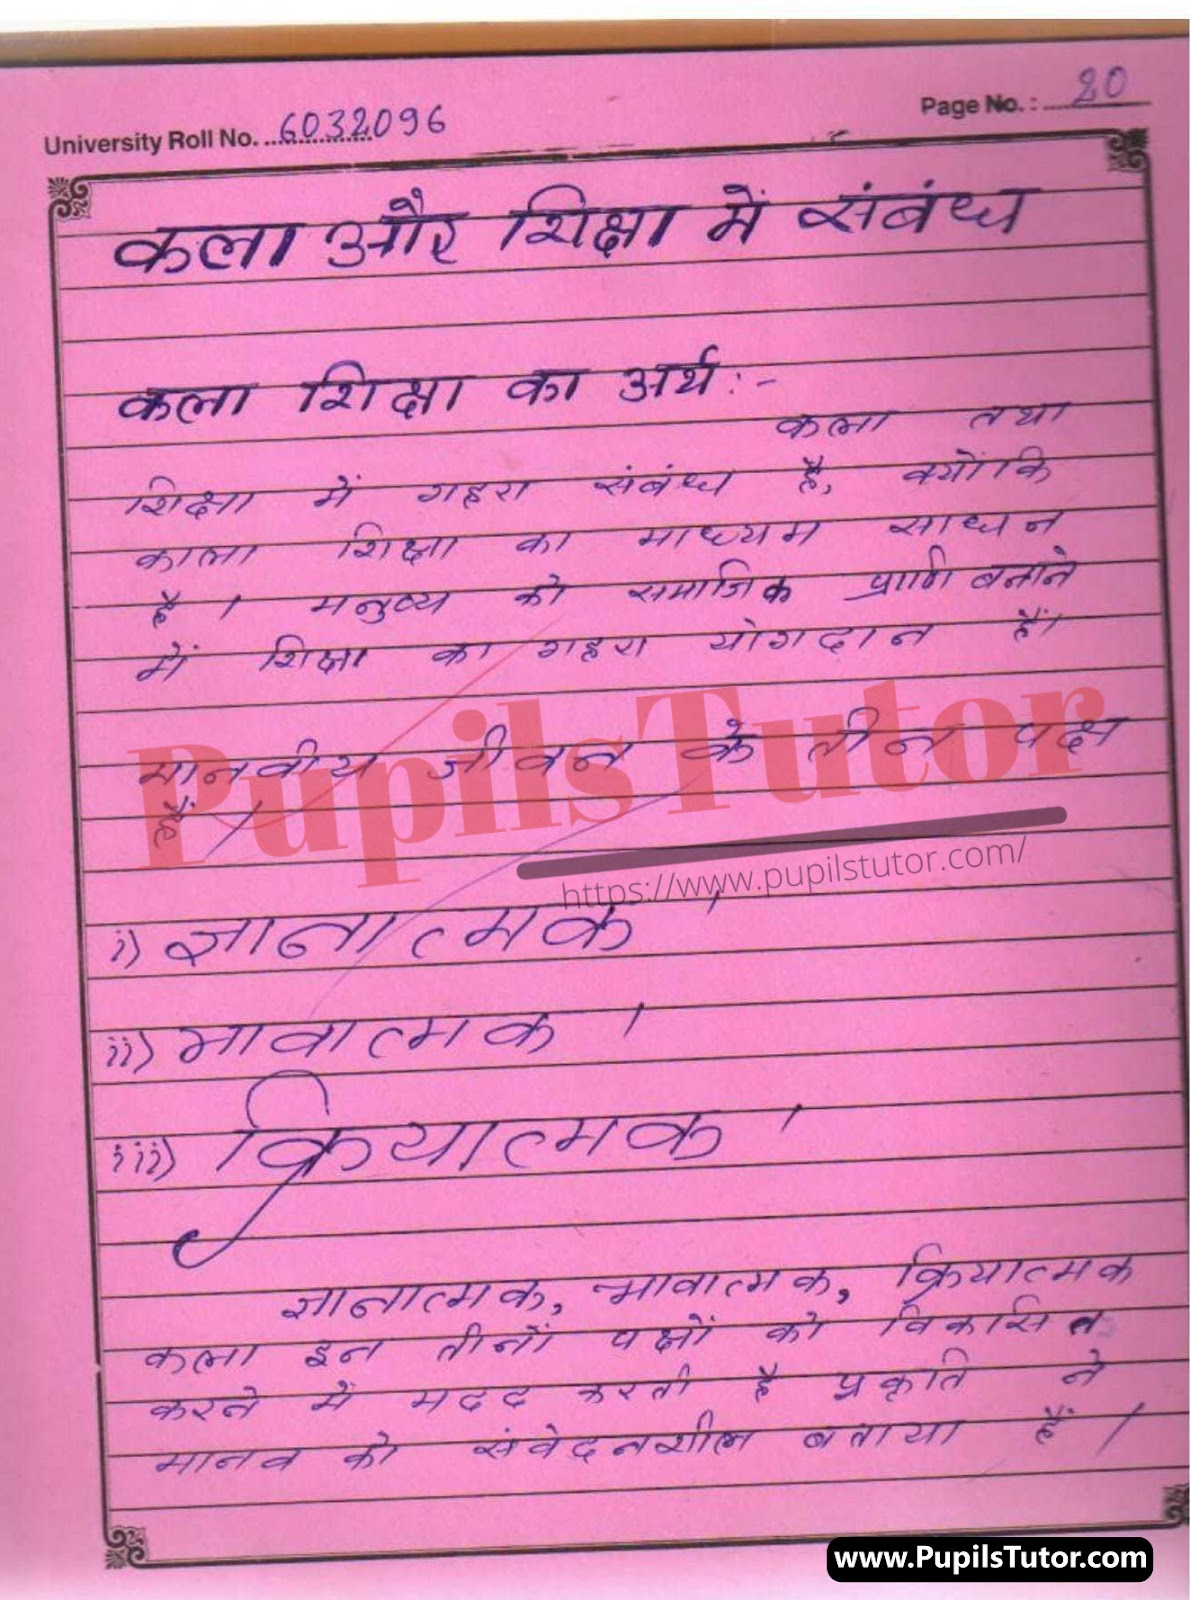 University Roll No. 6032096
Page No. : 20
कला और शिक्षा में संबंध
कला शिक्षा का अर्थ :-
कला तथा
शिक्षा में गहरा संबंध है, क्योंकि
काला शिक्षा का माध्यम साधन
है । मनुष्य को समाजिक प्राणि बनाने
में शिक्षा का गहरा योगदान हैं।
मानवीय जीवन के तीन पक्ष
हैं ।
PupilsTutor
https://www.pupilstutor.com/
i) ज्ञानात्मक ।
ii) भावात्मक ।
iii) क्रियात्मक ।
ज्ञानात्मक, भावात्मक, क्रियात्मक
कला इन तीनों पक्षों को विकसित
करने में मदद करती है प्रकृति ने
मानव को संवेदनशील बताया हैं ।
www.PupilsTutor.com